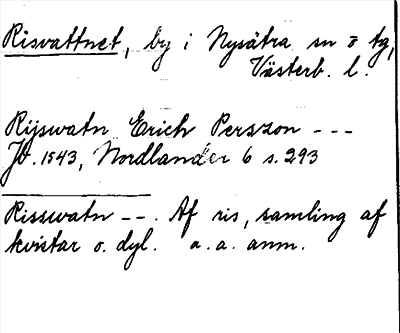 Risvattnet, by i Nysätra sn o tg,
Västerb. l.
Rijswatn Erich Perszon ---
Jb. 1543, Nordlander 6 s. 293
Risswatn --. Af ris, samling af
kvistar o. dyl. a. a. anm.